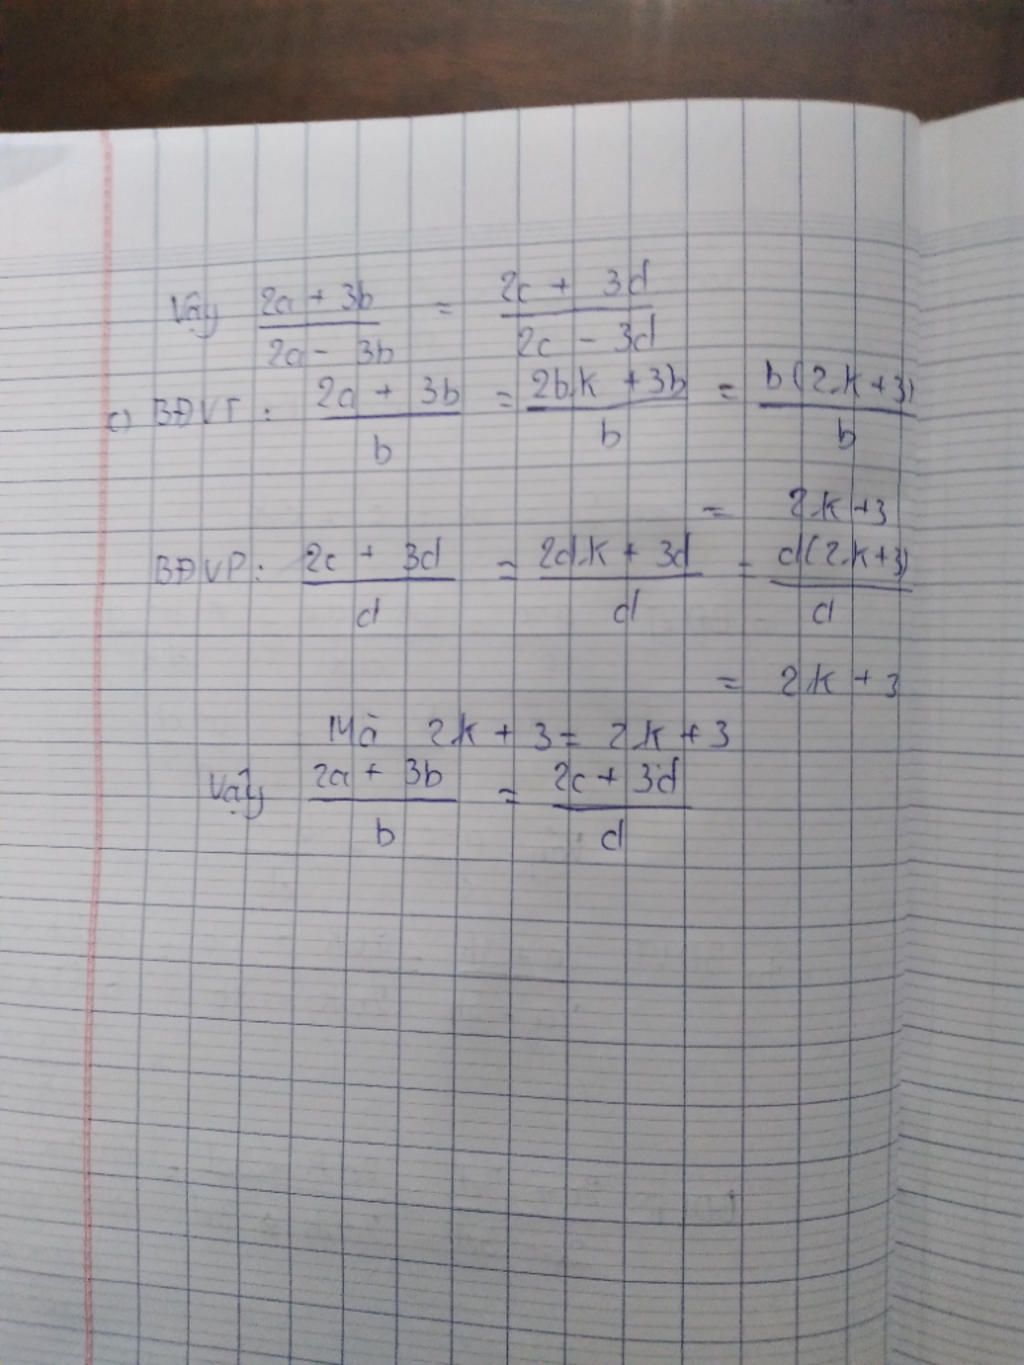 Vậy (2a + 3b)/(2a - 3b) = (2c + 3d)/(2c - 3d)
c) BĐVT: (2a + 3b)/b = (2b.k + 3b)/b = b(2.k+3)/b
= 2.k+3
BĐVP: (2c + 3d)/d = (2d.k + 3d)/d = d(2.k+3)/d
= 2k + 3
Mà 2k + 3 = 2k + 3
Vậy (2a + 3b)/b = (2c + 3d)/d